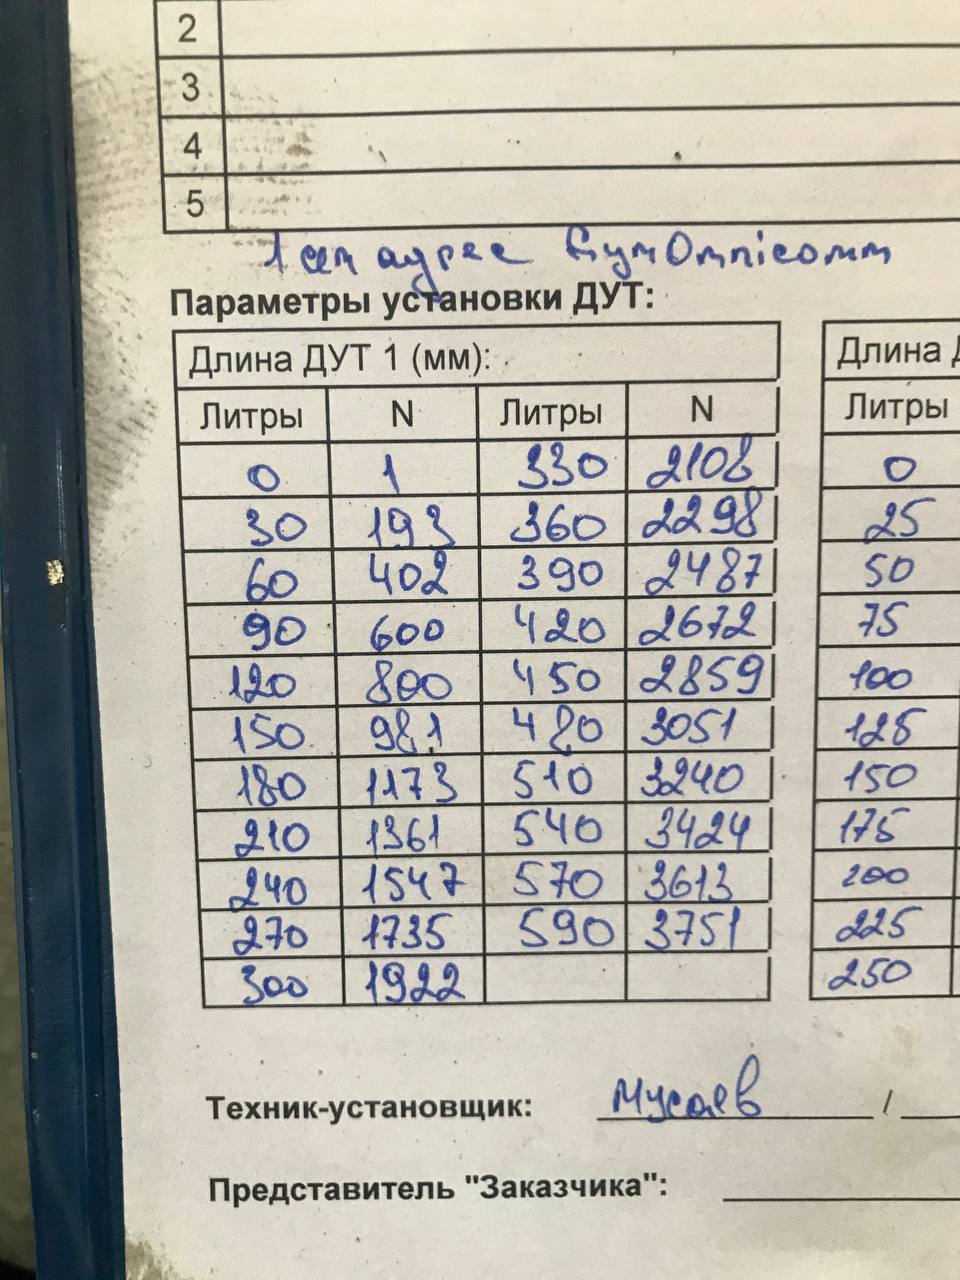 2
3
4
5
1 сет адрес Дут Omnicomm
Параметры установки ДУТ:
Длина ДУТ 1 (мм): Длина Д
Литры N Литры N Литры
0 1 330 2108 0
30 193 360 2298 25
60 402 390 2487 50
90 600 420 2672 75
120 800 450 2859 100
150 981 480 3051 125
180 1173 510 3240 150
210 1361 540 3424 175
240 1547 570 3613 200
270 1735 590 3751 225
300 1922 250
Техник-установщик: Мусаев /
Представитель "Заказчика":